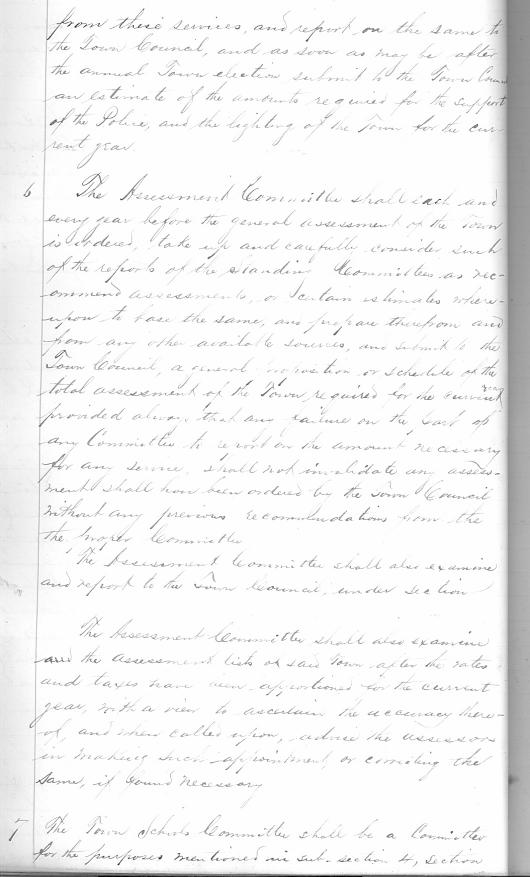 from these services, and report on the same to
the Town Council, and as soon as may be after
the annual Town election submit to the Town Council
an estimate of the amounts required for the support
of the Police, and the lighting of the Town for the cur-
rent year
6 The Assessment Committee shall each and
every year before the general assessment of the Town
is ordered, take up and carefully consider such
of the reports of the standing Committees as rec-
ommend assessments, or certain estimates where-
upon to base the same, and prepare therefrom and
from any other available sources, and submit to the
Town Council, a general proposition or schedule of the
total assessment of the Town required for the current year
provided always that any failure on the part of
any Committee to report on the amount necessary
for any service, shall not invalidate any assess-
ment shall have been ordered by the Town Council
without any previous recommendations from the
the proper Committee
The Assessment Committee shall also examine
and report to the Town Council, under section
The Assessment Committee shall also examine
and the assessment lists of said Town after the rates
and taxes have been apportioned for the current
year, with a view to ascertain the accuracy there-
of, and when called upon, advise the assessors
in making such appointment or correcting the
same, if found necessary
7 The Town Schools Committee shall be a Committee
for the purposes mentioned in sub-section 4, section